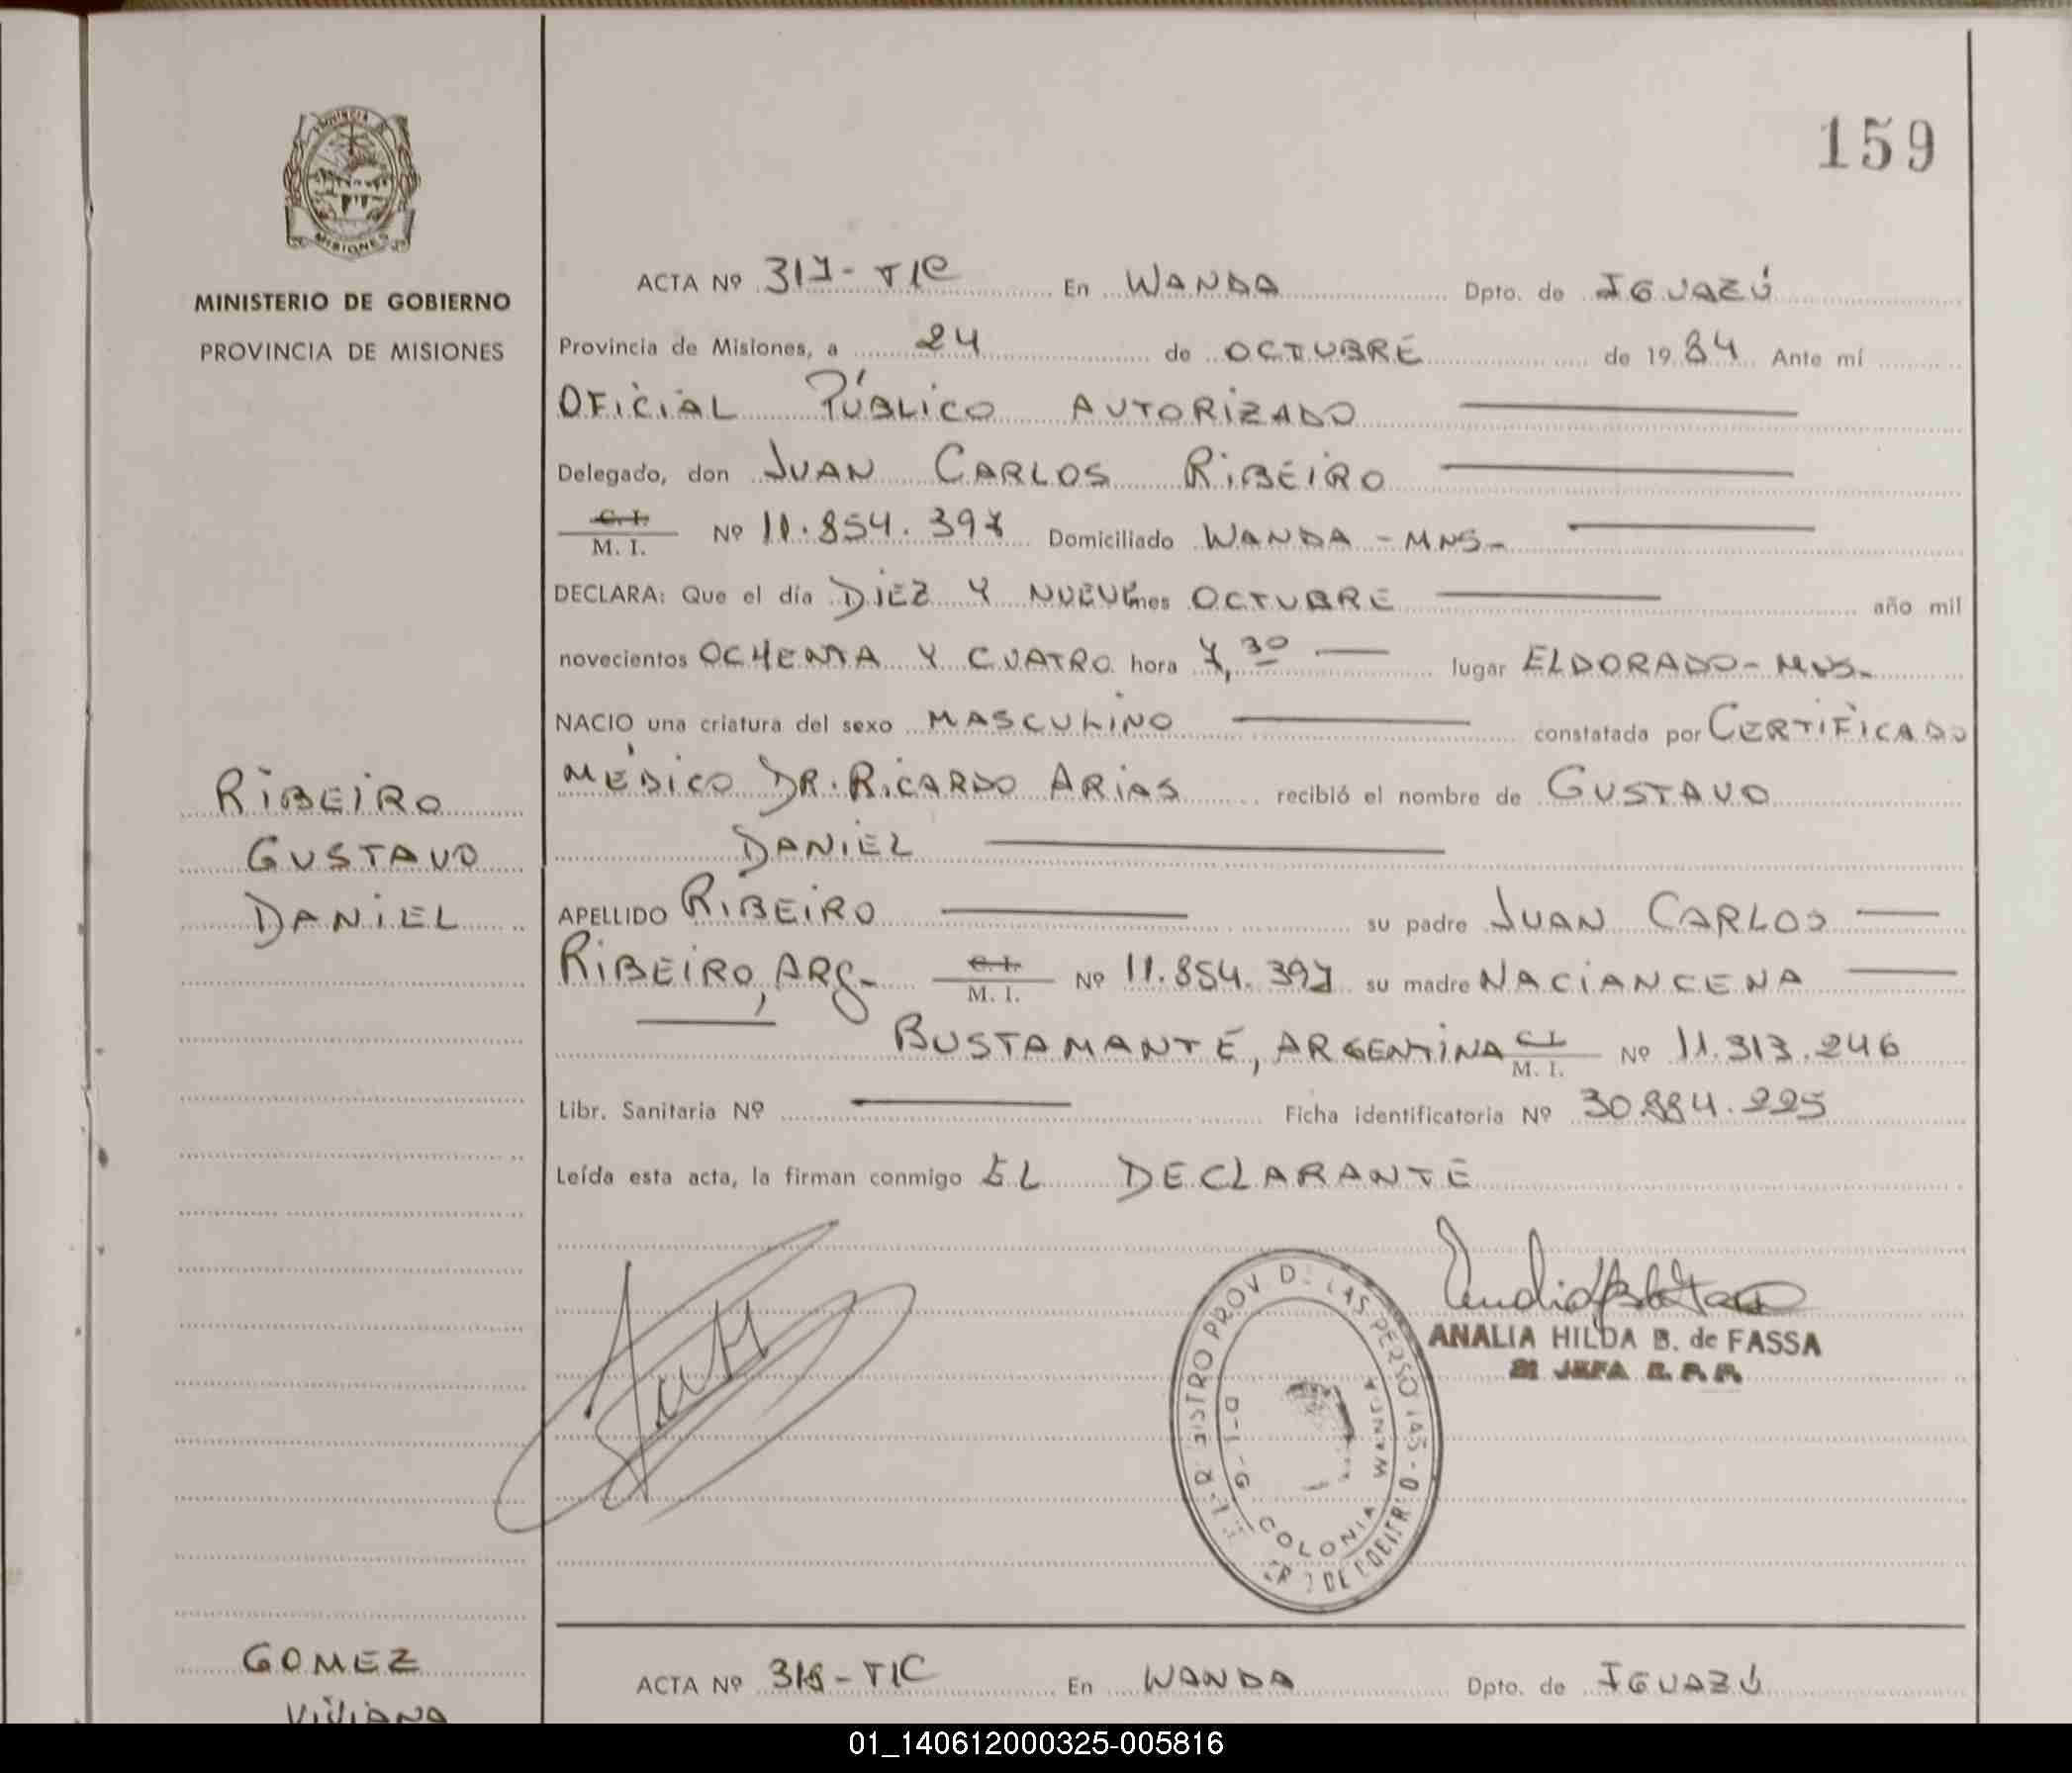 159
MINISTERIO DE GOBIERNO
PROVINCIA DE MISIONES
RIBEIRO
GUSTAVO
DANIEL
ACTA Nº 317- TIC En WANDA Dpto. de IGUAZÚ
Provincia de Misiones, a 24 de OCTUBRE de 1984 Ante mí
OFICIAL PÚBLICO AUTORIZADO
Delegado, don JUAN CARLOS RIBEIRO
C. I.
M. I. Nº 11.854.397 Domiciliado WANDA - MNS-
DECLARA: Que el día DIEZ Y NUEVE mes OCTUBRE año mil
novecientos OCHENTA Y CUATRO hora 7,30 lugar ELDORADO- MNS-
NACIO una criatura del sexo MASCULINO constatada por CERTIFICADO
MÉDICO DR. RICARDO ARIAS recibió el nombre de GUSTAVO
DANIEL
APELLIDO RIBEIRO su padre JUAN CARLOS
RIBEIRO, ARG- C. I.
M. I. Nº 11.854.397 su madre NACIANCENA
BUSTAMANTE, ARGENTINA C I
M. I. Nº 11.313.246
Libr. Sanitaria Nº Ficha identificatoria Nº 30.884.225
Leída esta acta, la firman conmigo EL DECLARANTE
ANALIA HILDA B. de FASSA
JEFA R. P. P.
COLONIA WANDA
GOMEZ
VIVIANA
ACTA Nº 318-TIC En WANDA Dpto. de IGUAZÚ
01_140612000325-005816